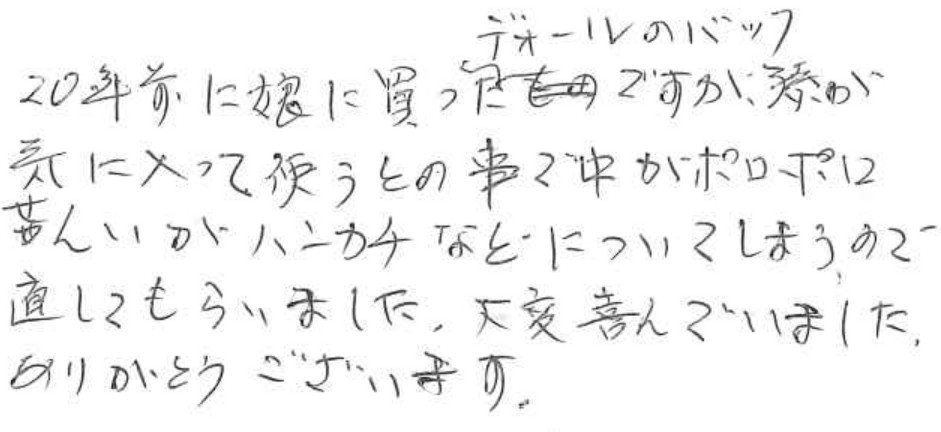 ディオールのバック
20年前に娘に買ったものですが、孫が
気に入って使うとの事で中がボロボロ
せんいがハンカチなどについてしまうので
直してもらいました。大変喜んでいました。
ありがとうございます。